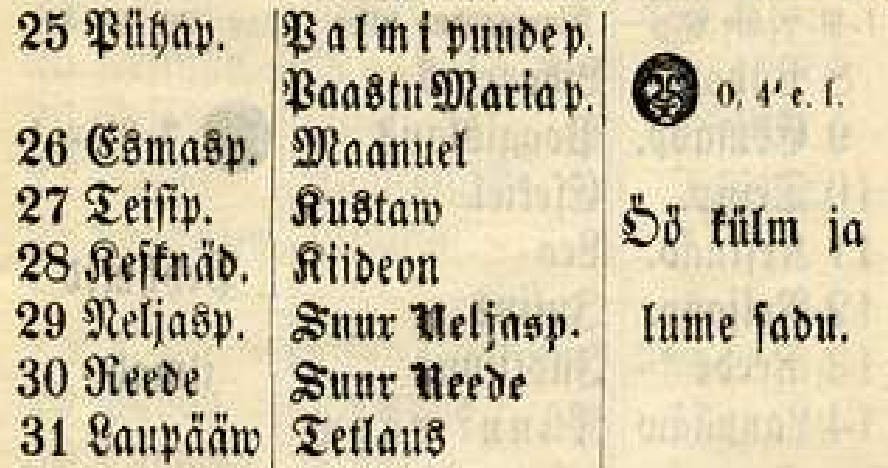 25 Pühap. Palmipuudep.
Paastu Maria p. 0, 4' e. l.
26 Esmasp. Maanuel
27 Teisip. Kustaw
28 Kesknäd. Kiideon
Öö külm ja
29 Neljasp. Suur Neljasp.
lume sadu.
30 Reede Suur Reede
31 Laupääw Tetlaus